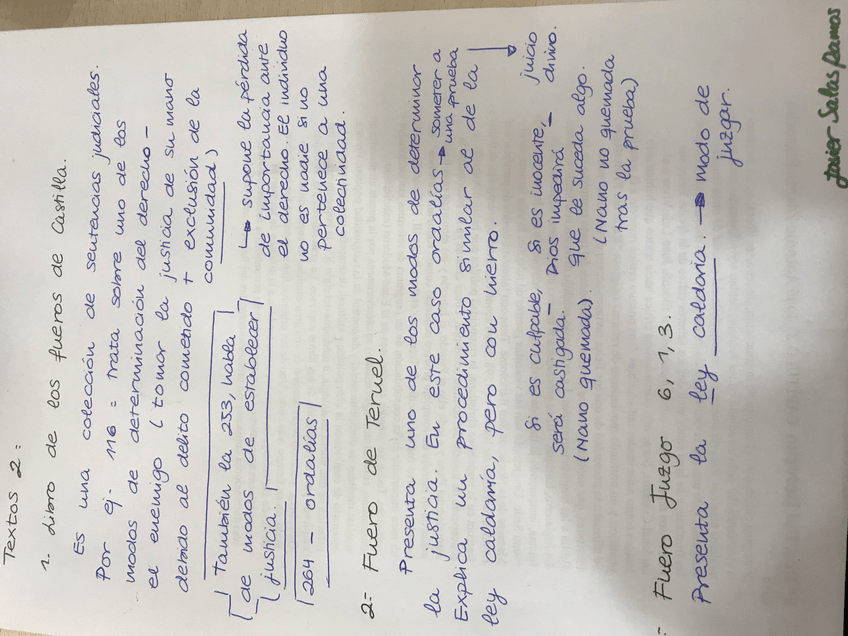 Textos 2:
1. Libro de los fueros de Castilla.
Es una colección de sentencias judiciales.
Por ej. 116 = Trata sobre uno de los
modos de determinación del derecho -
el enemigo (tomar la justicia de su mano
debido al delito cometido + exclusión de la
comunidad)
↳ supone la pérdida
de importancia ante
el derecho. El individuo
no es nadie si no
pertenece a una
colectividad.
También la 253, habla
de modos de establecer
justicia.
264 - ordalías
2= Fuero de Teruel.
Presenta uno de los modos de determinar
la justicia. En este caso ordalías → someter a
una prueba
Explica un procedimiento similar al de la
ley caldaria, pero con hierro.
↓ juicio
divino.
Si es culpable,
será castigada.
(Mano quemada).
- Si es inocente, -
Dios impedirá
que le suceda algo.
(Mano no quemada
tras la prueba)
- Fuero Juzgo 6, 1, 3.
Presenta la ley caldaria. → modo de
juzgar.
Javier Salas Ramos